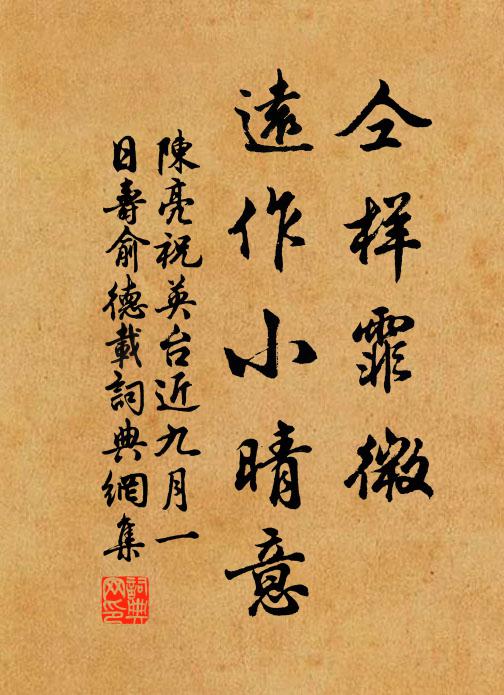 仝样霏微
遠作小晴意
陳亮祝英台近九月一
日壽俞德載詞典網集
詞典网印